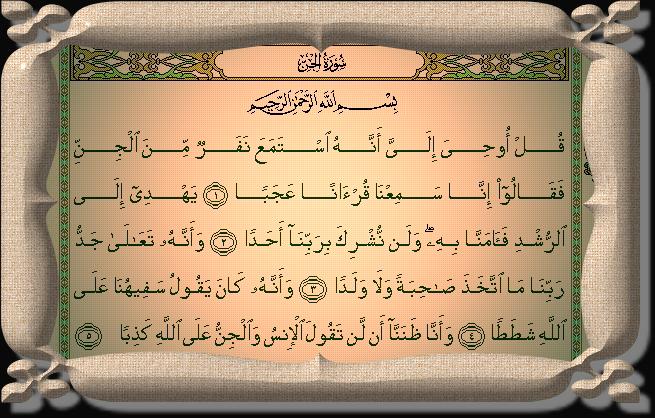 سُورَةُ الجِنِّ
بِسْمِ اللَّهِ الرَّحْمَٰنِ الرَّحِيمِ
قُلْ أُوحِىَ إِلَىَّ أَنَّهُ ٱسْتَمَعَ نَفَرٌ مِّنَ ٱلْجِنِّ
فَقَالُوٓا۟ إِنَّا سَمِعْنَا قُرْءَانًا عَجَبًا ١ يَهْدِىٓ إِلَى
ٱلرُّشْدِ فَـَٔامَنَّا بِهِۦ ۖ وَلَن نُّشْرِكَ بِرَبِّنَآ أَحَدًا ٢ وَأَنَّهُۥ تَعَٰلَىٰ جَدُّ
رَبِّنَا مَا ٱتَّخَذَ صَٰحِبَةً وَلَا وَلَدًا ٣ وَأَنَّهُۥ كَانَ يَقُولُ سَفِيهُنَا عَلَى
ٱللَّهِ شَطَطًا ٤ وَأَنَّا ظَنَنَّآ أَن لَّن تَقُولَ ٱلْإِنسُ وَٱلْجِنُّ عَلَى ٱللَّهِ كَذِبًا ٥